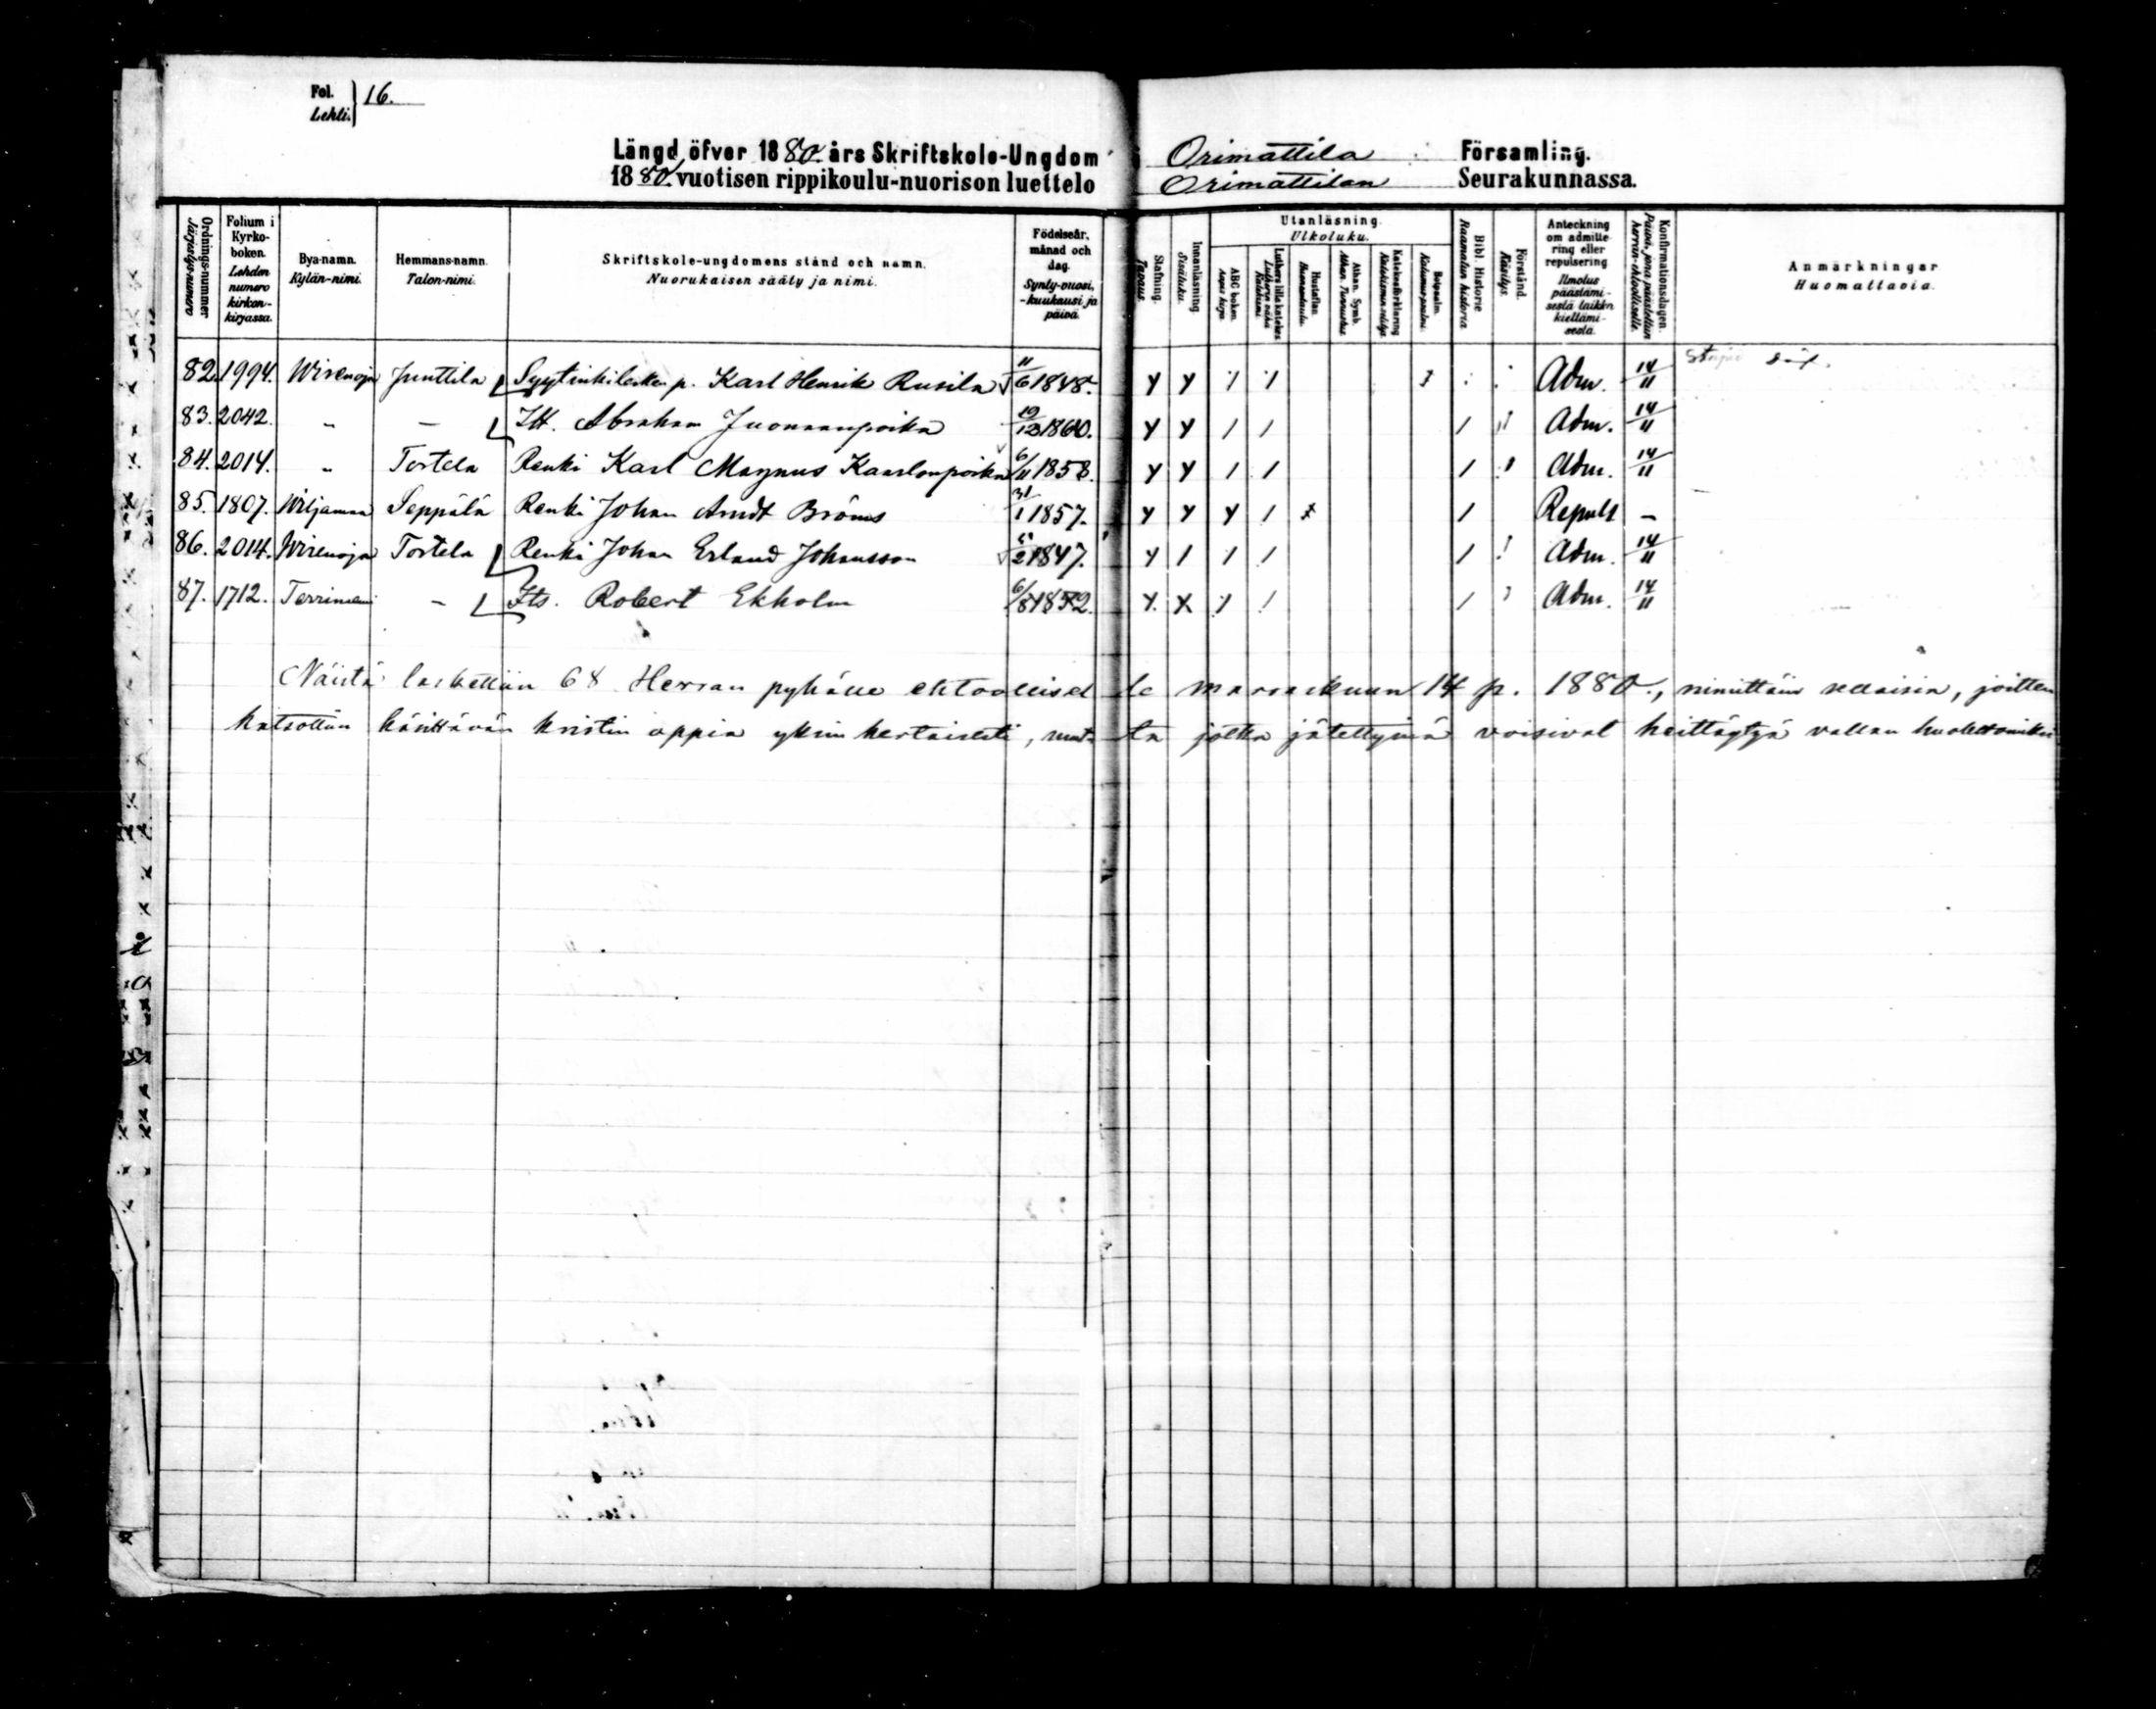 Fol. Lehti. } 16.
Längd öfver 1880. års Skriftskole-Ungdom Orimattila Församling.
1880. vuotisen rippikoulu-nuorison luettelo Orimattilan Seurakunnassa.
Ordnings-nummer Järjestys-numero
Folium i Kyrko-boken. Lehden numero kirkon-kirjassa.
Bya-namn. Kylän-nimi.
Hemmans-namn. Talon-nimi.
Skriftskole-ungdomens stånd och namn. Nuorukaisen sääty ja nimi.
Födelseår, månad och dag. Synty-vuosi, -kuukausi ja päivä.
Stafning. Tavaus.
Innanläsning Sisäluku.
Utanläsning. Ulkoluku.
ABC boken. Aapis kirja.
Luthers lilla katekes Lutherin vähä Katekismi.
Hustaflan. Huoneentaulu.
Athan. Symb. Athan. Tunnustus.
Katekesförklaring Katekismus-selitys.
Botpsalm. Katumus-psalmi.
Bibl. Historie Raamatun historia
Förstånd. Käsitys.
Anteckning om admitte-ring eller repulsering Ilmotus päästämi-sestä taikka kieltämi-sestä.
Konfirmationsdagen. Päivä, jona päästettiin herran-ehtoolliselle.
Anmärkningar Huomattavia.
82. 1994. Wirenoja Junttila Syytinkilesken p. Karl Henrik Rusila 11/6 1848. y y / / Adm. 14/11
83. 2042. " – Itt. Abraham Juonaanpoika 19/12 1860. y y / / / Adm. 14/11
84. 2014. " Tortela Renki Karl Magnus Kaarlonpoika 6/11 1858. y y / / / Adm. 14/11
85. 1807. Wiljamaa Seppälä Renki Johan Arndt Bröms 31/1 1857. y y y / x / Repuls –
86. 2014. Wirenoja Tortela Renki Johan Erland Johansson /2 1847. y / / / / Adm. 14/11
87. 1712. – Its. Robert Ekholm 6/8 1852. y. x / / / Adm. 14/11
Näistä laskettiin 68 Herran pyhälle ehtoolliselle marraskuun 14 p. 1880., nimittäin sellaisia, joitten
katsottiin käsittävän kristin oppia yksinkertaisesti, mutta jotka jätettyinä voisivat heittäytyä vallan huolettomiksi